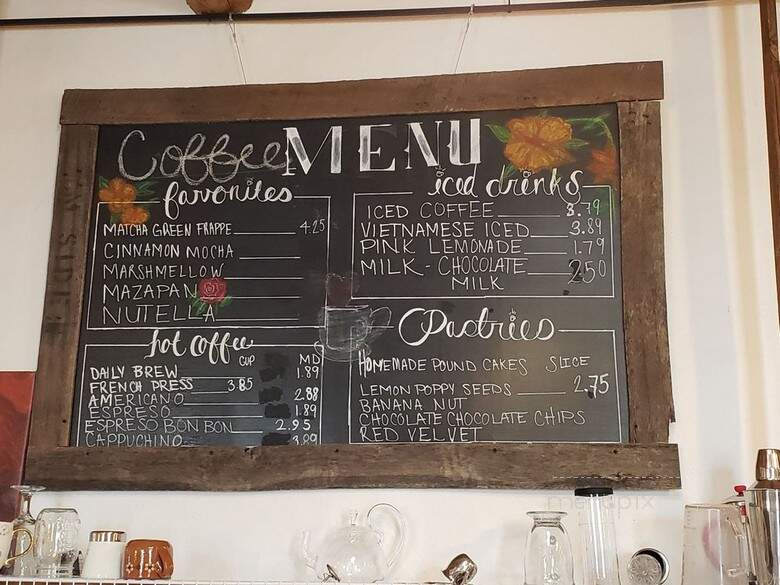 Coffee MENU
favorites
MATCHA GREEN FRAPPE 4.25
CINNAMON MOCHA
MARSHMELLOW
MAZAPAN
NUTELLA
hot coffee
CUP MD
DAILY BREW 1.89
FRENCH PRESS 3.85
AMERICANO 2.88
ESPRESO 1.89
ESPRESO BON BON 2.95
CAPPUCHINO 3.89
iced drinks
ICED COFFEE 3.79
VIETNAMESE ICED 3.89
PINK LEMONADE 1.79
MILK - CHOCOLATE 2.50
MILK
Pastries
HOMEMADE POUND CAKES SLICE
LEMON POPPY SEEDS 2.75
BANANA NUT
CHOCOLATE CHOCOLATE CHIPS
RED VELVET
menupix